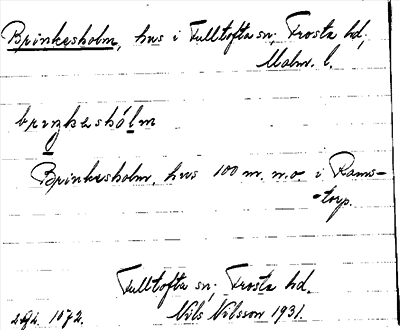 Brinkesholm, hus i Fulltofta sn; Frosta hd,
Malm. l.
briŋkeshólm
Brinkesholm, hus 100 m. n.o. i Rams-
torp.
Fulltofta sn; Frosta hd.
Nils Nilsson 1931.
1072.